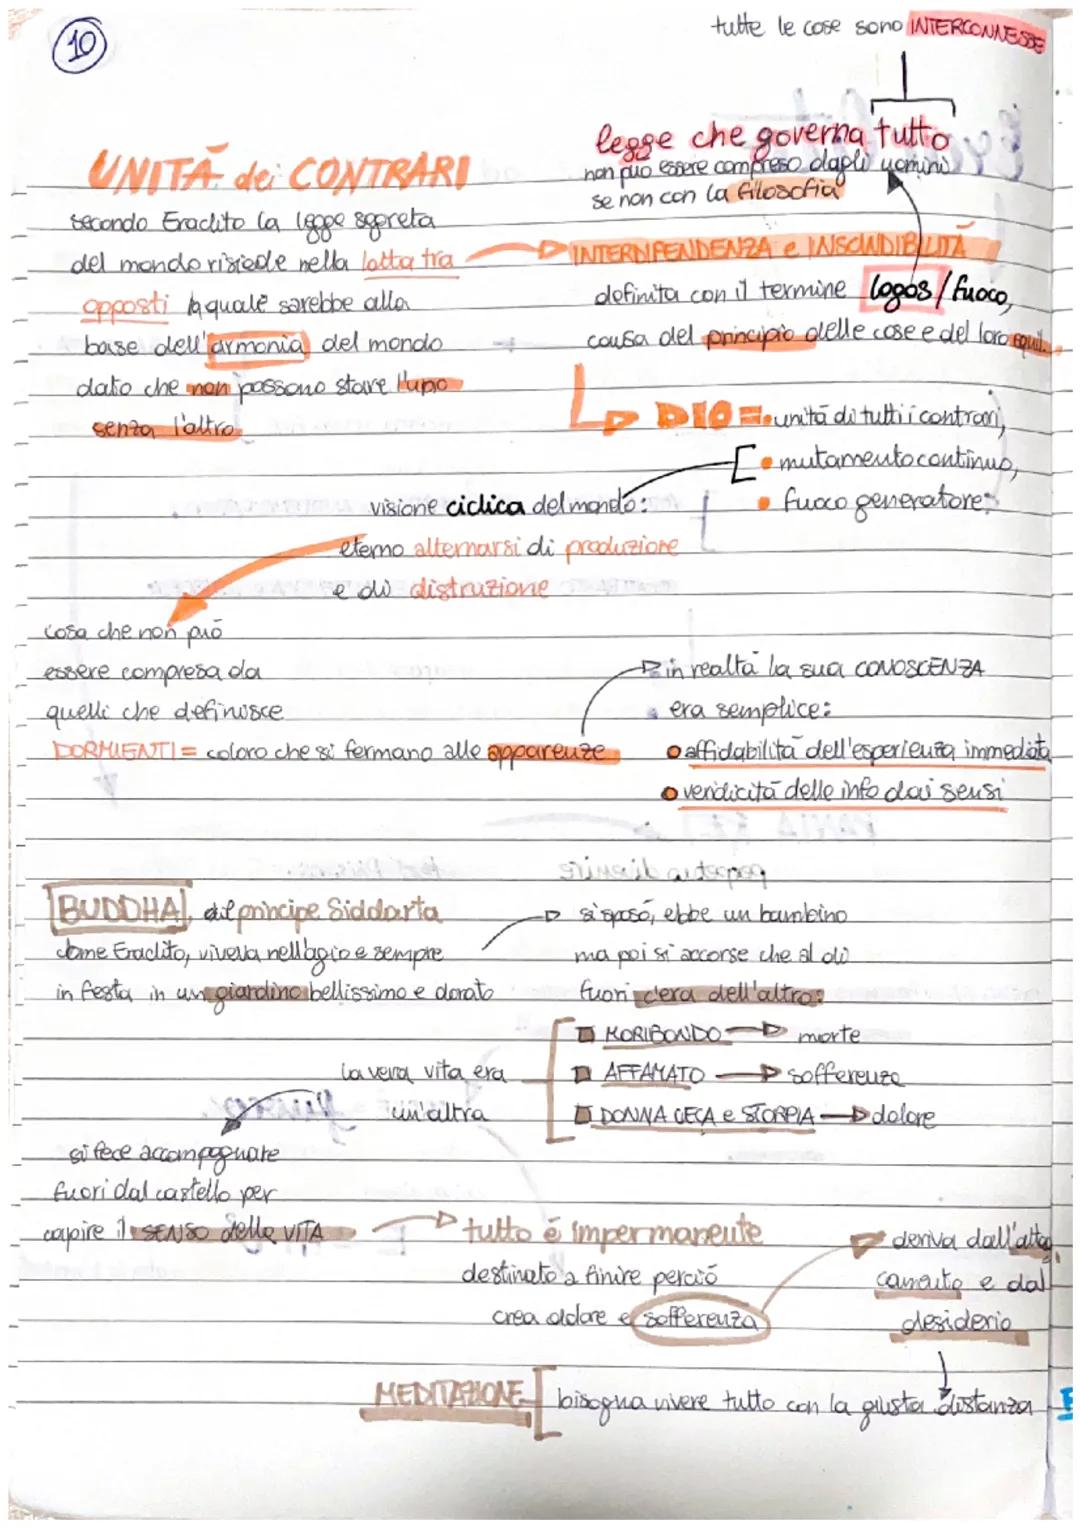 10
tutte le cose sono INTERCONNESSE
legge che governa tutto
non può essere compreso dagli uomini
se non con la filosofia
UNITÀ dei CONTRARI
secondo Eraclito la legge segreta
del mondo risiede nella lotta tra
opposti la quale sarebbe alla
base dell'armonia del mondo
dato che non possono stare l'uno
senza l'altro.
INTERDIPENDENZA e INSCINDIBILITÀ
definita con il termine logos / fuoco,
causa del principio delle cose e del loro equil.
DIO = • unità di tutti i contrari,
• mutamento continuo,
• fuoco generatore:
visione ciclica del mondo:
eterno alternarsi di produzione
e di distruzione
cosa che non può
essere compresa da
quelli che definisce
DORMIENTI = coloro che si fermano alle apparenze
in realtà la sua CONOSCENZA
era semplice:
• affidabilità dell'esperienza immediata
• veridicità delle info dai sensi
BUDDHA, il principe Siddarta
come Eraclito, viveva nell'agio e sempre
in festa in un giardino bellissimo e dorato
si sposò, ebbe un bambino
ma poi si accorse che al di
fuori c'era dell'altro:
MORIBONDO → morte
AFFAMATO → sofferenza
DONNA CECA e STORPIA → dolore
la vera vita era
un'altra
si fece accompagnare
fuori dal castello per
capire il SENSO della VITA
tutto è impermanente
destinato a finire perciò
crea dolore e sofferenza
deriva dall'attac
camento e dal
desiderio
MEDITAZIONE bisogna vivere tutto con la giusta distanza